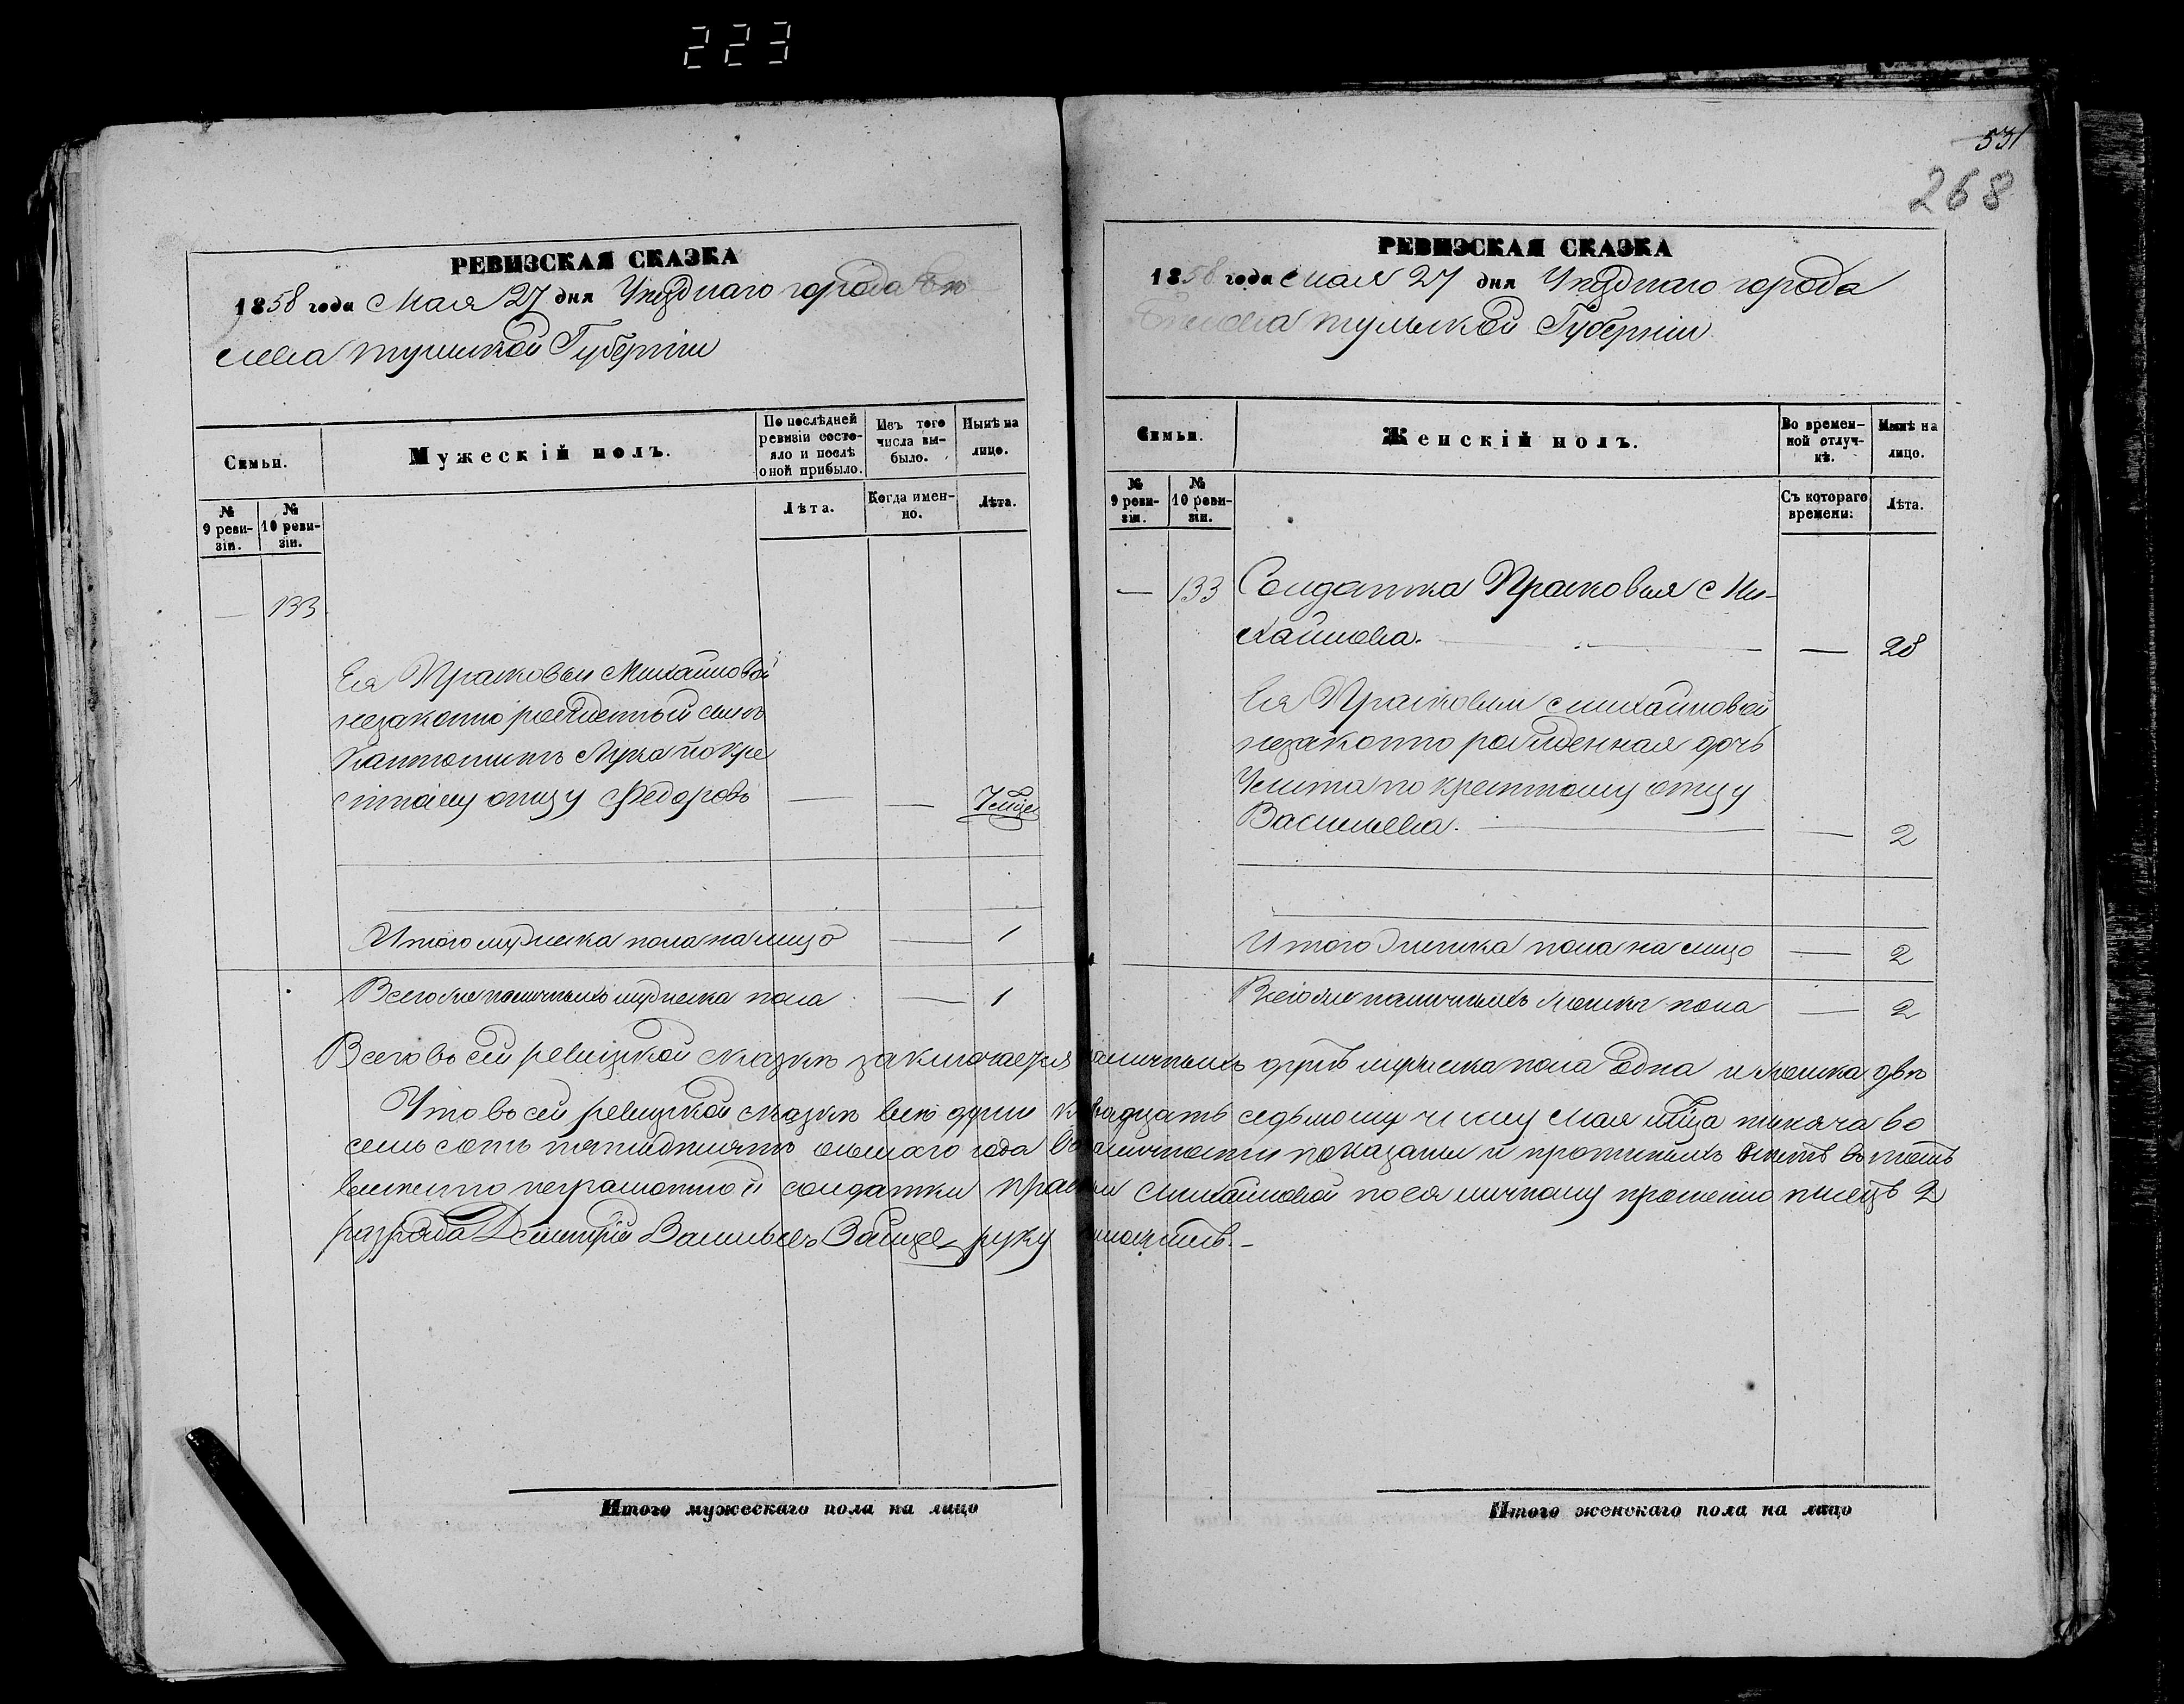 223
531
268
РЕВИЗСКАЯ СКАЗКА
1858 года Мая 27 дня Уѣзднаго города Бѣ
лева тульской Губерніи
Семьи.
Мужескій полъ.
По послѣдней ревизіи состояло и послѣ оной прибыло.
Изъ того числа выбыло.
Нынѣ на лицо.
№ 9 ревизіи.
№ 10 ревизіи.
Лѣта.
Когда именно.
Лѣта.
— 133
Ея Прасковьи Михайловой
незаконно рожденный сынъ
Кантонистъ Лука по кре
стному отцу Федоровъ — —
Итого мужеска пола на лицо — 1
Всего же наличныхъ мужеска пола — 1
РЕВИЗСКАЯ СКАЗКА
1858 года Мая 27 дня Уѣзднаго города
Бѣлева тульской Губерніи
Семьи.
Женскій полъ.
Во временной отлучкѣ.
Нынѣ на лицо.
№ 9 ревизіи.
№ 10 ревизіи.
Съ котораго времени.
Лѣта.
— 133 Солдатка Прасковья Ми-
хайлова. — 28
Ея Прасковьи Михайловой
незаконно рожденная дочь
Улита по крестному отцу
Васильева. — 2
Итого женска пола на лицо — 2
Всего же наличныхъ женска пола — 2
Всего въ сей ревизской сказкѣ заключается наличныхъ душъ мужеска пола одна и женска двѣ
Что въ сей ревизской сказкѣ всѣ души къ двадцать седьмому числу Мая мѣсяца тысяча во
семьсотъ пятьдесятъ осьмаго года въ наличности показаны и прописныхъ нѣтъ въ томъ
вмѣсто неграмотной солдатки Прасковьи Михайловой по ея личному прошенію писецъ 2
разряда Дмитрій Васильевъ Зайцев руку приложилъ.
Итого мужескаго пола на лицо
Итого женскаго пола на лицо